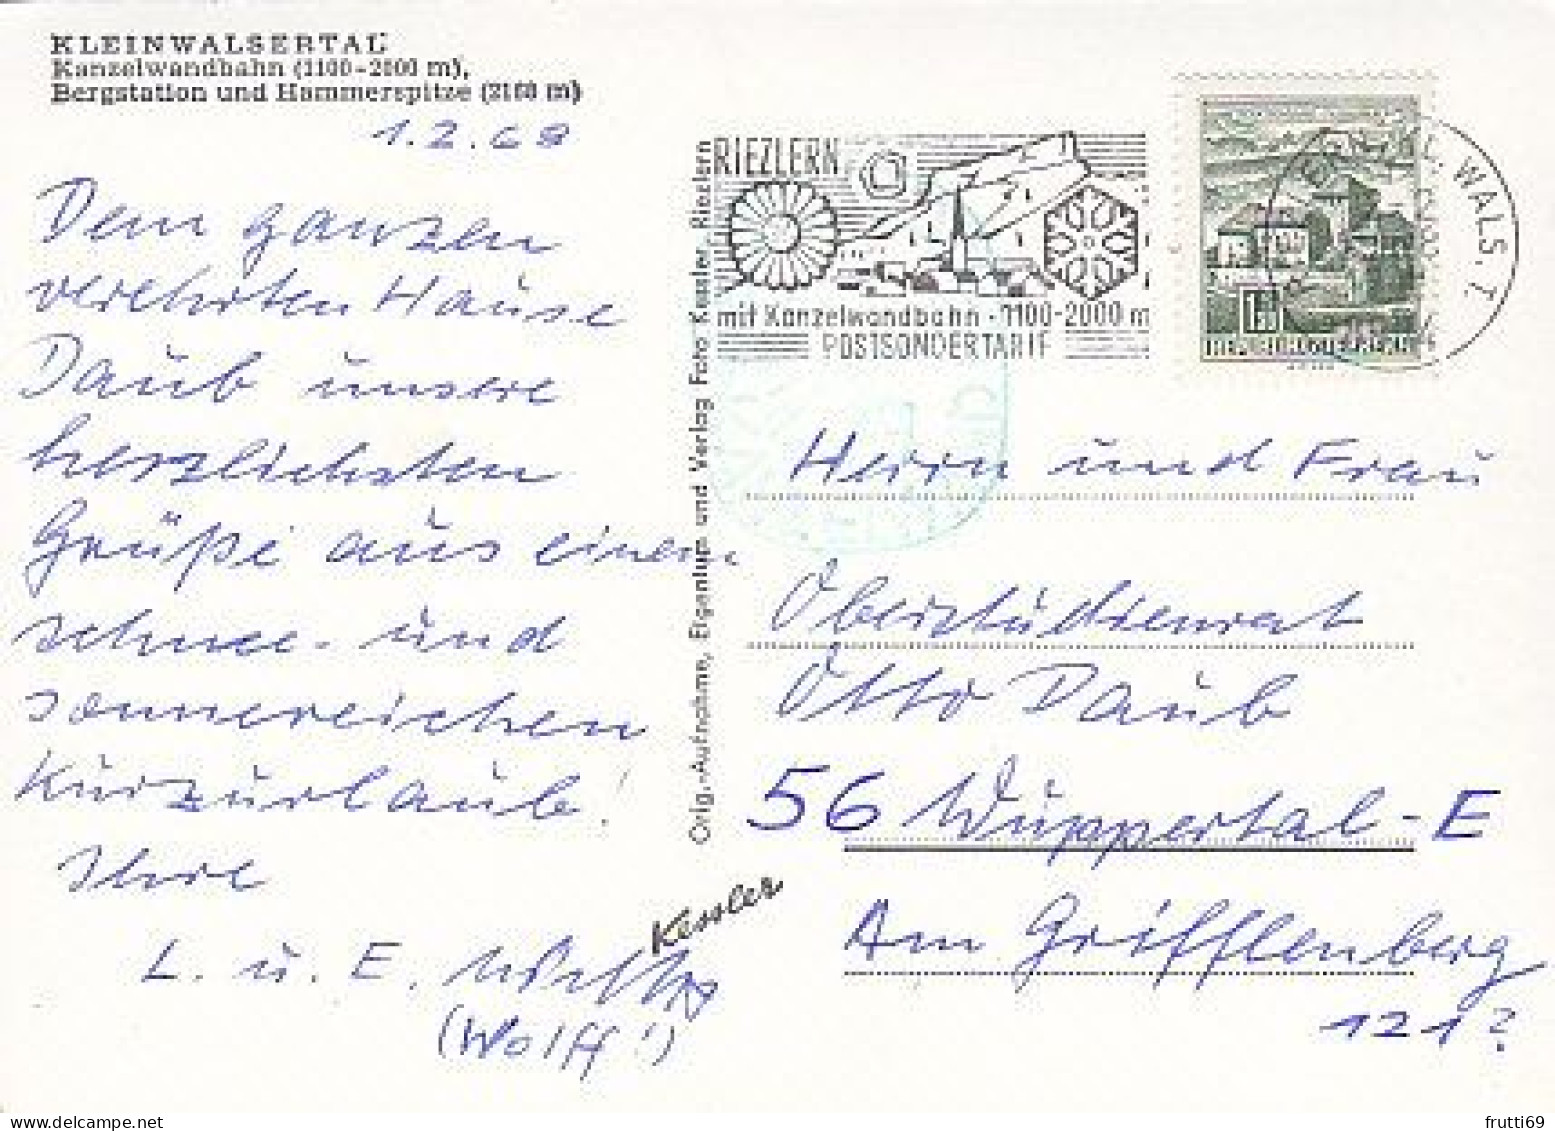 KLEINWALSERTAL
Kanzelwandbahn (1100-2000 m),
Bergstation und Hammerspitze (2160 m)
1.2.68
Dem ganzen
verehrten Hause
Daub unsere
herzlichsten
Grüße aus einem
schnee- und
sonnereichen
Kurzurlaub!
Ihre
L. u. E. Wolff
(Wolff!)
Kessler
Orig.-Aufnahme, Eigentum und Verlag Foto Kessler, Riezlern
RIEZLERN
mit Kanzelwandbahn · 1100-2000 m
POSTSONDERTARIF
WALS. T.
Herrn und Frau
Oberstudienrat
Otto Daub
56 Wuppertal-E
Am Grifflenberg
121?
frutti69